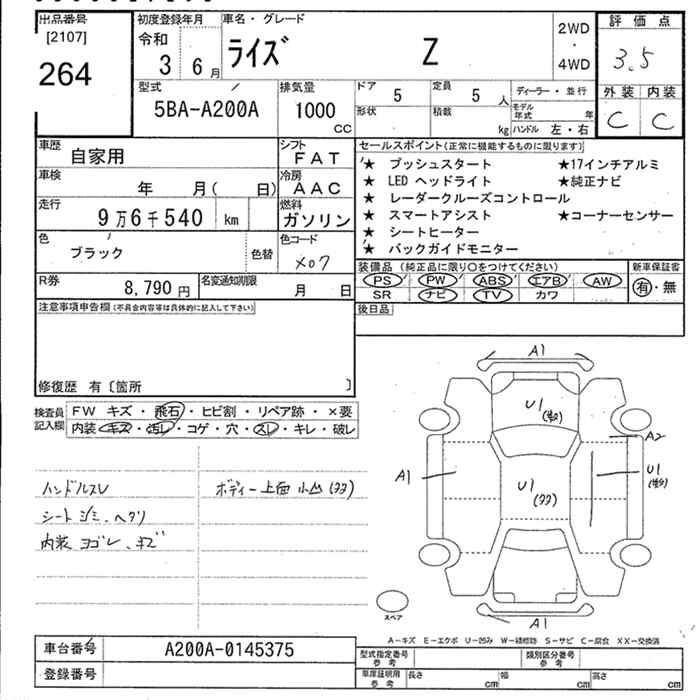 出品番号
[2107]
264
初度登録年月
令和
3 6月
車名・グレード
ライズ Z
2WD
・
4WD
評価点
3.5
外装 内装
C C
型式
5BA-A200A
排気量
1000
cc
ドア 5
定員 5 人
形状
積載 kg
ディーラー・並行
モデル年式 年
ハンドル 左・右
車歴 自家用
シフト
FAT
車検 年 月( 日)
冷房
AAC
走行 9万6千540 km
燃料
ガソリン
色 ブラック 色替
色コード
X07
R券 8,790円
名変通知期限 月 日
セールスポイント(正常に機能するものに限ります)
★ プッシュスタート ★17インチアルミ
★ LED ヘッドライト ★純正ナビ
★ レーダークルーズコントロール
★ スマートアシスト ★コーナーセンサー
★ シートヒーター
★ バックガイドモニター
装備品(純正品に限り〇をつけてください)
PS PW ABS エアB AW
SR ナビ TV カワ
新車保証書
有・無
後日品
注意事項申告欄(不具合内容等は具体的に記入して下さい)
修復歴 有〔箇所 〕
検査員記入欄
FW キズ・飛石・ヒビ割・リペア跡・×要
内装 キズ・汚レ・コゲ・穴・スレ・キレ・破レ
ハンドルスレ
シートシミ、ヘタリ
内装ヨゴレ、キズ
ボディー上面 小凸(多多)
A1
U1
A2
A1
U1
U1
(多多)
A1
スペア
A-キズ E-エクボ U-凹み W-補修跡 S-サビ C-腐食 XX-交換済
車台番号 A200A-0145375
登録番号
型式指定番号
参考
類別区分番号
参考
車庫証明用
参考
長さ cm
幅 cm
高さ cm